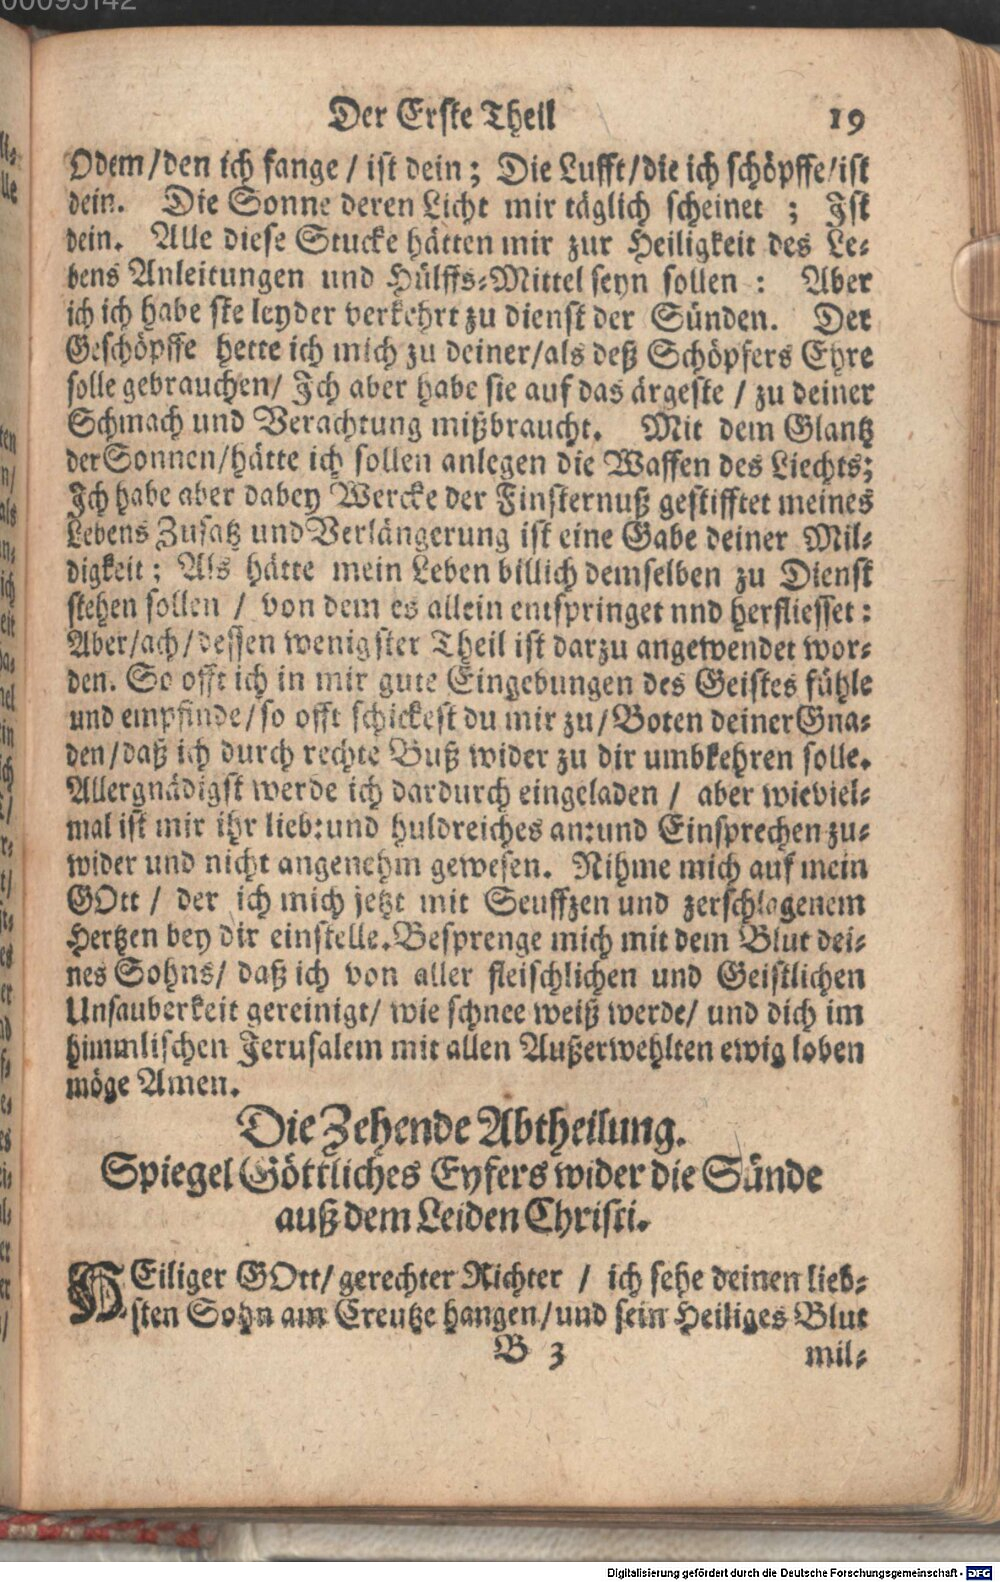 00095142
Der Erste Theil 19
Odem/den ich fange / ist dein; Die Lufft/die ich schöpffe/ist
dein. Die Sonne deren Licht mir täglich scheinet ; Ist
dein. Alle diese Stucke hätten mir zur Heiligkeit des Le-
bens Anleitungen und Hülffs-Mittel seyn sollen : Aber
ich ich habe ste leyder verkehrt zu dienst der Sünden. Der
Geschöpffe hette ich mich zu deiner/als deß Schöpfers Ehre
solle gebrauchen/ Ich aber habe sie auf das ärgeste / zu deiner
Schmach und Verachtung mißbraucht. Mit dem Glantz
der Sonnen/hätte ich sollen anlegen die Waffen des Liechts;
Ich habe aber dabey Wercke der Finsternuß gestifftet meines
Lebens Zusatz und Verlängerung ist eine Gabe deiner Mil-
digkeit; Als hätte mein Leben billich demselben zu Dienst
stehen sollen / von dem es allein entspringet nnd herfliesset:
Aber/ach/dessen wenigster Theil ist darzu angewendet wor-
den. So offt ich in mir gute Eingebungen des Geistes fühle
und empfinde/so offt schickest du mir zu/Boten deiner Gna-
den/daß ich durch rechte Buß wider zu dir umbkehren solle.
Allergnädigst werde ich dardurch eingeladen / aber wieviel-
mal ist mir ihr lieb-und huldreiches an-und Einsprechen zu-
wider und nicht angenehm gewesen. Nihme mich auf mein
GOtt / der ich mich jetzt mit Seuffzen und zerschlagenem
Hertzen bey dir einstelle. Besprenge mich mit dem Blut dei-
nes Sohns/ daß ich von aller fleischlichen und Geistlichen
Unsauberkeit gereinigt/ wie schnee weiß werde/ und dich im
himmlischen Jerusalem mit allen Außerwehlten ewig loben
möge Amen.
Die Zehende Abtheilung.
Spiegel Göttliches Eyfers wider die Sünde
auß dem Leiden Christi.
HEiliger GOtt/ gerechter Richter / ich sehe deinen lieb-
sten Sohn am Creutze hangen/und sein Heiliges Blut
B 3 mil-
Digitalisierung gefördert durch die Deutsche Forschungsgemeinschaft - DFG